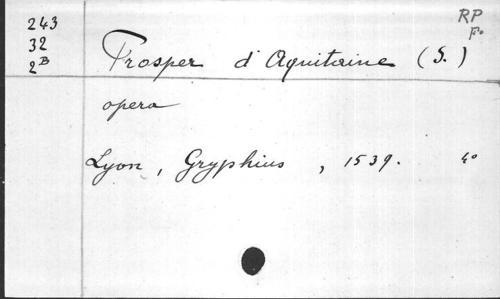 243
32
2B
RP
Fo
Prosper d'Aquitaine (S.)
opera
Lyon, Gryphius, 1539. 4o